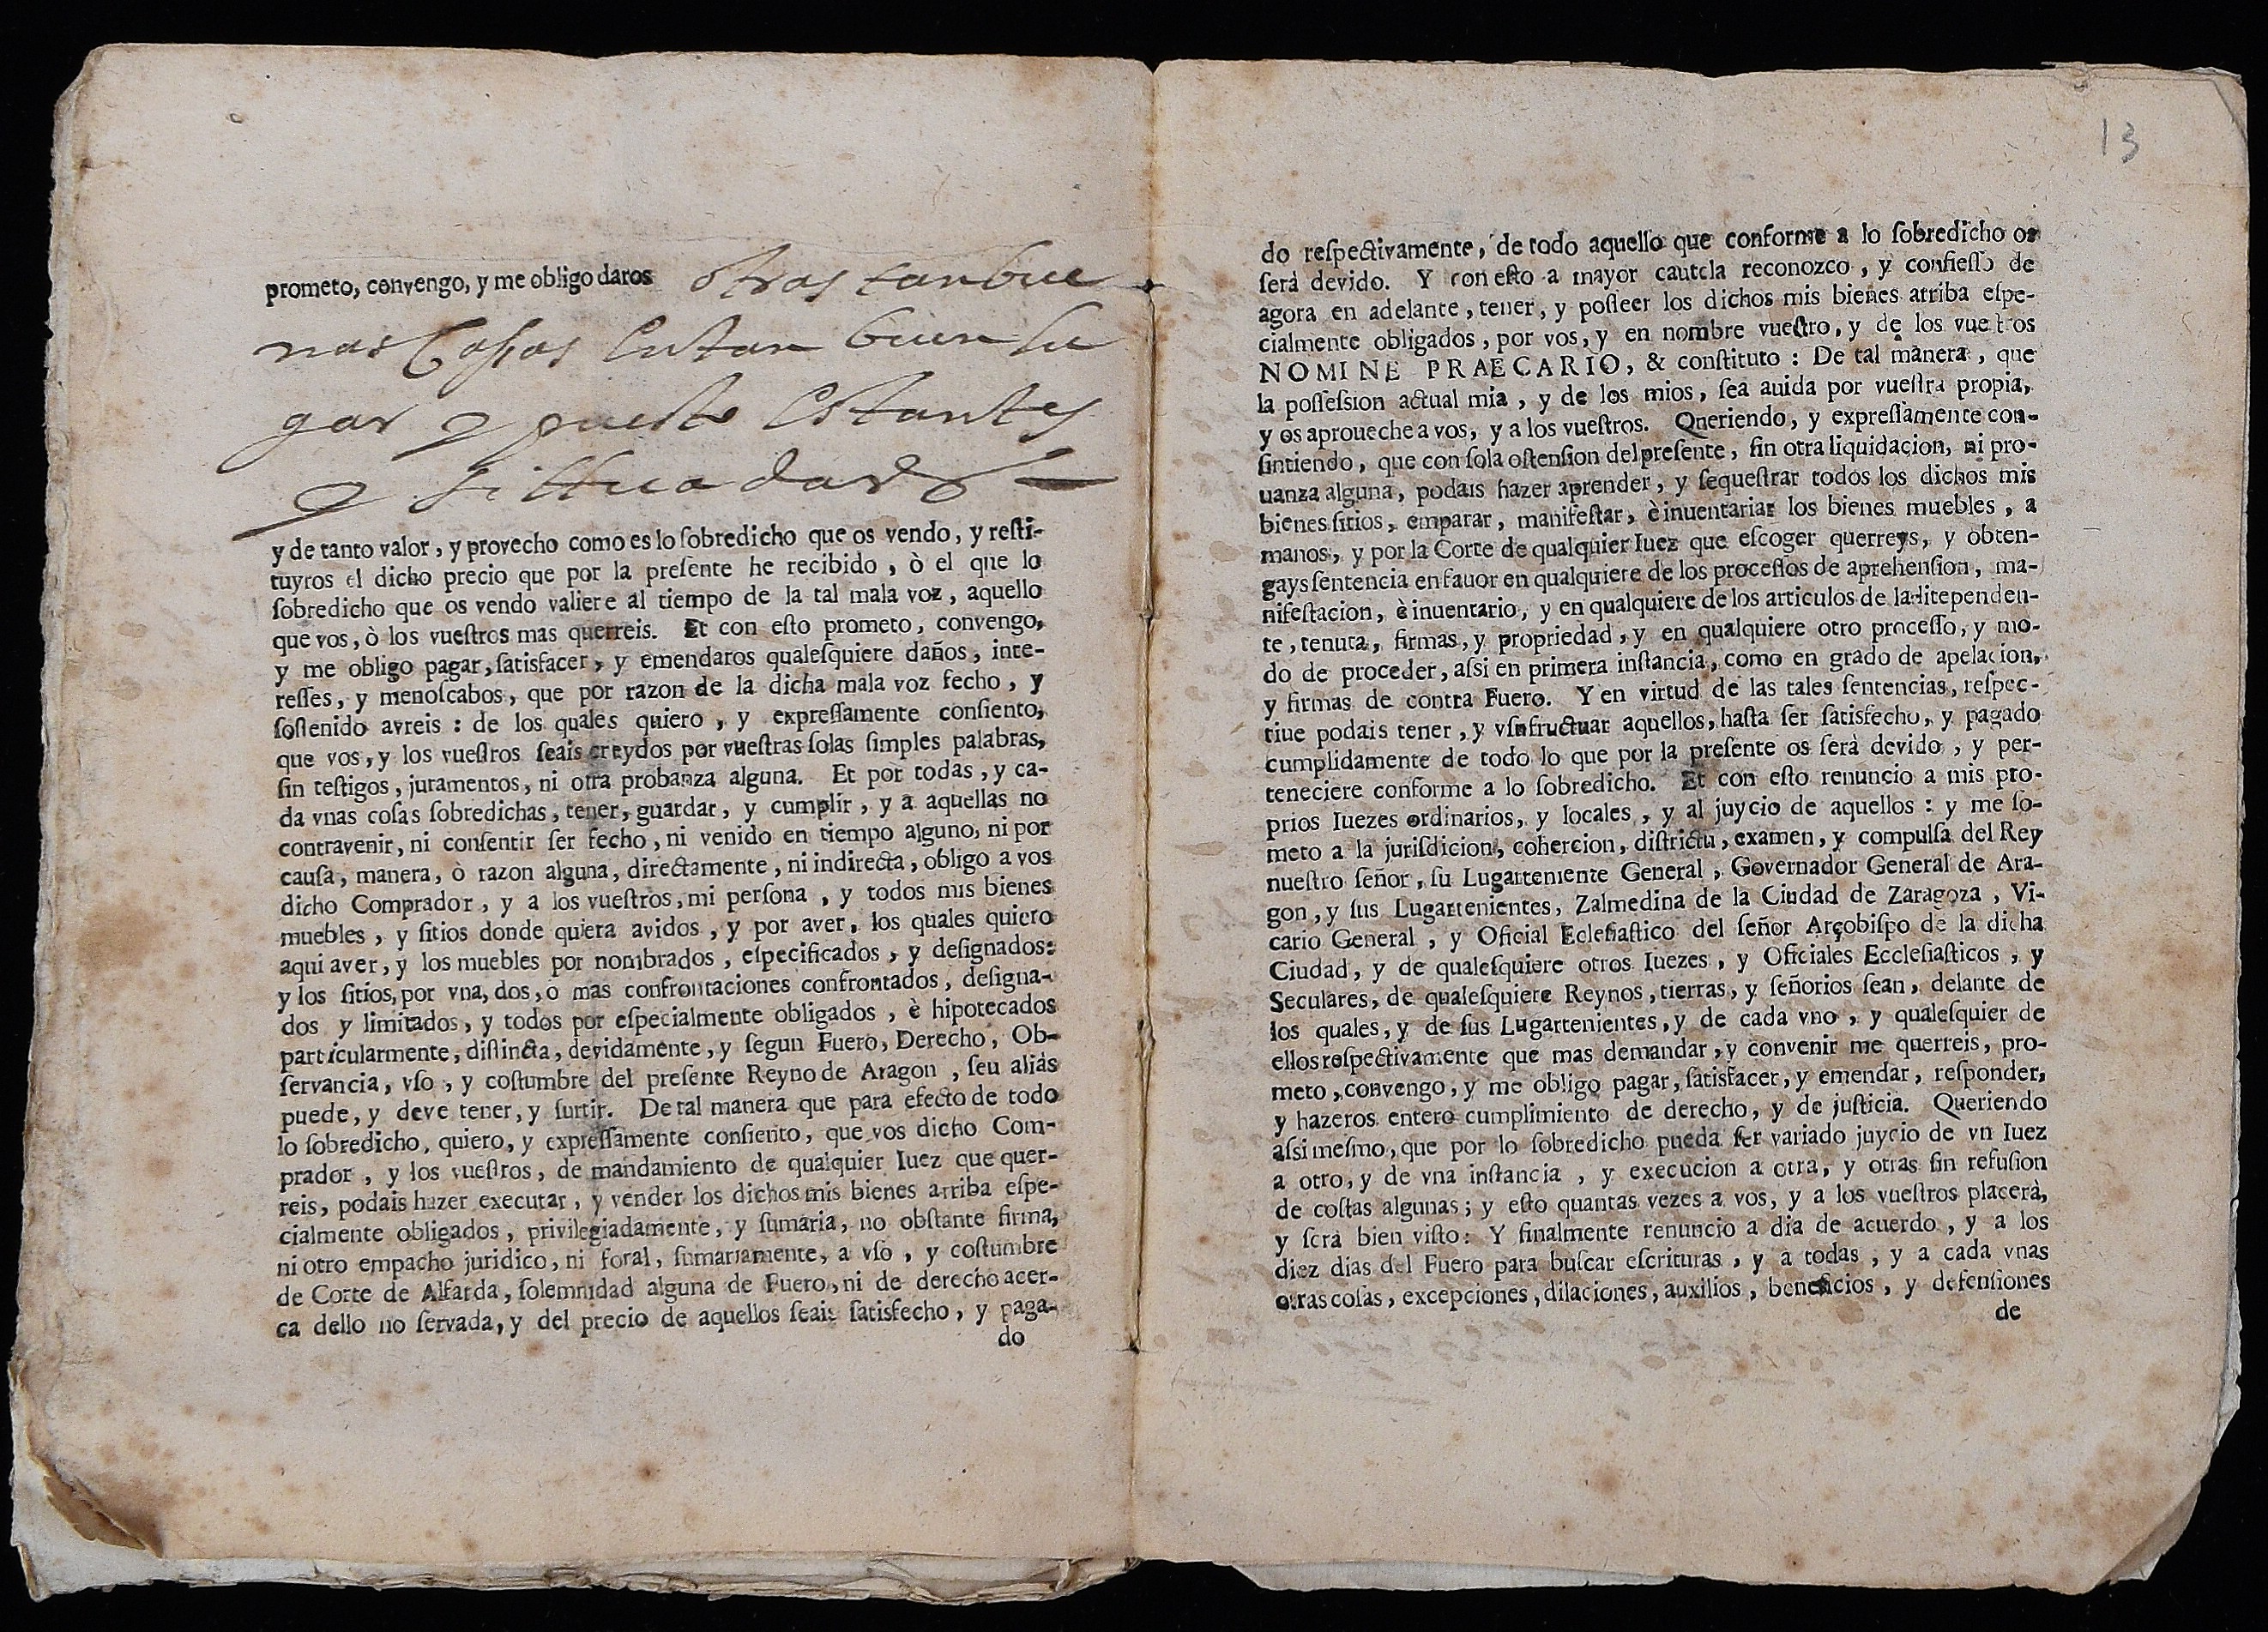 prometo, convengo, y me obligo daros otras tan bue
nas Cassas en tan buen lu
gar y puesto estantes
y sittuadas
y de tanto valor, y provecho como es lo ſobredicho que os vendo, y reſti-
tuyros el dicho precio que por la preſente he recibido, ò el que lo
ſobredicho que os vendo valiere al tiempo de la tal mala voz, aquello
que vos, ò los vueſtros mas querreis. Et con eſto prometo, convengo,
y me obligo pagar, ſatisfacer, y emendaros qualeſquiere daños, inte-
reſſes, y menoſcabos, que por razon de la dicha mala voz fecho, y
ſoſtenido avreis : de los quales quiero, y expreſſamente conſiento,
que vos, y los vueſtros ſeais creydos por vueſtras ſolas ſimples palabras,
ſin teſtigos, juramentos, ni otra probanza alguna. Et por todas, y ca-
da vnas coſas ſobredichas, tener, guardar, y cumplir, y a aquellas no
contravenir, ni conſentir ſer fecho, ni venido en tiempo alguno, ni por
cauſa, manera, ò razon alguna, directamente, ni indirecta, obligo a vos
dicho Comprador, y a los vueſtros, mi perſona, y todos mis bienes
muebles, y ſitios donde quiera avidos, y por aver, los quales quiero
aqui aver, y los muebles por nombrados, eſpecificados, y deſignados:
y los ſitios, por vna, dos, ò mas confrontaciones confrontados, deſigna-
dos y limitados, y todos por eſpecialmente obligados, è hipotecados
particularmente, diſtincta, devidamente, y ſegun Fuero, Derecho, Ob-
ſervancia, vſo, y coſtumbre del preſente Reyno de Aragon, ſeu aliàs
puede, y deve tener, y ſurtir. De tal manera que para efecto de todo
lo ſobredicho, quiero, y expreſſamente conſiento, que vos dicho Com-
prador, y los vueſtros, de mandamiento de qualquier Iuez que quer-
reis, podais hazer executar, y vender los dichos mis bienes arriba eſpe-
cialmente obligados, privilegiadamente, y ſumaria, no obſtante firma,
ni otro empacho juridico, ni foral, ſumariamente, a vſo, y coſtumbre
de Corte de Alfarda, ſolemnidad alguna de Fuero, ni de derecho acer-
ca dello no ſervada, y del precio de aquellos ſeais ſatisfecho, y paga-
do
13
do reſpectivamente, de todo aquello que conforme a lo ſobredicho os
ſerà devido. Y con eſto a mayor cautela reconozco, y confieſſo de
agora en adelante, tener, y poſſeer los dichos mis bienes arriba eſpe-
cialmente obligados, por vos, y en nombre vueſtro, y de los vueſtros
NOMINE PRAECARIO, & conſtituto : De tal manera, que
la poſſeſsion actual mia, y de los mios, ſea auida por vueſtra propia,
y os aproueche a vos, y a los vueſtros. Queriendo, y expreſſamente con-
ſintiendo, que con ſola oſtenſion del preſente, ſin otra liquidacion, ni pro-
uanza alguna, podais hazer aprender, y ſequeſtrar todos los dichos mis
bienes ſitios, emparar, manifeſtar, è inuentariar los bienes muebles, a
manos, y por la Corte de qualquier Iuez que eſcoger querreys, y obten-
gays ſentencia en fauor en qualquiere de los proceſſos de aprehenſion, ma-
nifeſtacion, è inuentario, y en qualquiere de los articulos de la litependen-
te, tenuta, firmas, y propriedad, y en qualquiere otro proceſſo, y mo-
do de proceder, aſsi en primera inſtancia, como en grado de apelacion,
y firmas de contra Fuero. Y en virtud de las tales ſentencias, reſpec-
tiue podais tener, y vſufructuar aquellos, haſta ſer ſatisfecho, y pagado
cumplidamente de todo lo que por la preſente os ſerà devido, y per-
teneciere conforme a lo ſobredicho. Et con eſto renuncio a mis pro-
prios Iuezes ordinarios, y locales, y al juycio de aquellos : y me ſo-
meto a la juriſdicion, cohercion, diſtrictu, examen, y compulſa del Rey
nueſtro ſeñor, ſu Lugarteniente General, Governador General de Ara-
gon, y ſus Lugartenientes, Zalmedina de la Ciudad de Zaragoza, Vi-
cario General, y Oficial Ecleſiaſtico del ſeñor Arçobiſpo de la dicha
Ciudad, y de qualeſquiere otros Iuezes, y Oficiales Eccleſiaſticos, y
Seculares, de qualeſquiere Reynos, tierras, y ſeñorios ſean, delante de
los quales, y de ſus Lugartenientes, y de cada vno, y qualeſquier de
ellos reſpectivamente que mas demandar, y convenir me querreis, pro-
meto, convengo, y me obligo pagar, ſatisfacer, y emendar, reſponder,
y hazeros entero cumplimiento de derecho, y de juſticia. Queriendo
aſsi meſmo, que por lo ſobredicho pueda ſer variado juycio de vn Iuez
a otro, y de vna inſtancia, y execucion a otra, y otras ſin refuſion
de coſtas algunas; y eſto quantas vezes a vos, y a los vueſtros placerà,
y ſerà bien viſto: Y finalmente renuncio a dia de acuerdo, y a los
diez dias del Fuero para buſcar eſcrituras, y a todas, y a cada vnas
otras coſas, excepciones, dilaciones, auxilios, beneficios, y defenſiones
de